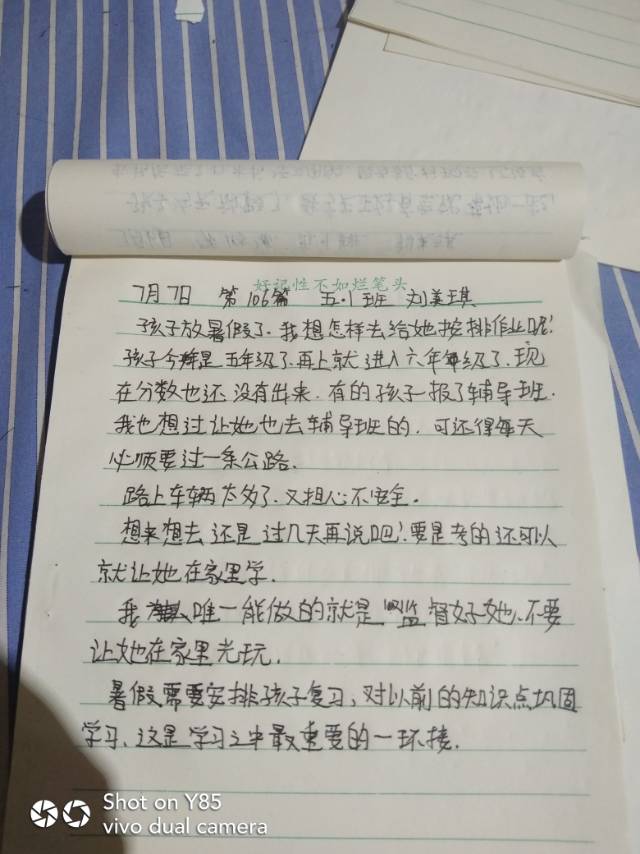 好记性不如烂笔头
7月7日 第106篇 五.1班 刘美琪
孩子放暑假了.我想怎样去给她按排作业呢!
孩子今年是五年级了.再上就进入六年级了.现
在分数也还没有出来.有的孩子报了辅导班.
我也想过让她也去辅导班的.可还得每天
必须要过一条公路.
路上车辆太多了.又担心不安全.
想来想去还是过几天再说吧!要是考的还可以
就让她在家里学.
我唯一能做的就是监督好她、不要
让她在家里光玩.
暑假需要安排孩子复习、对以前的知识点巩固
学习、这是学习之中最重要的一环接.
Shot on Y85
vivo dual camera